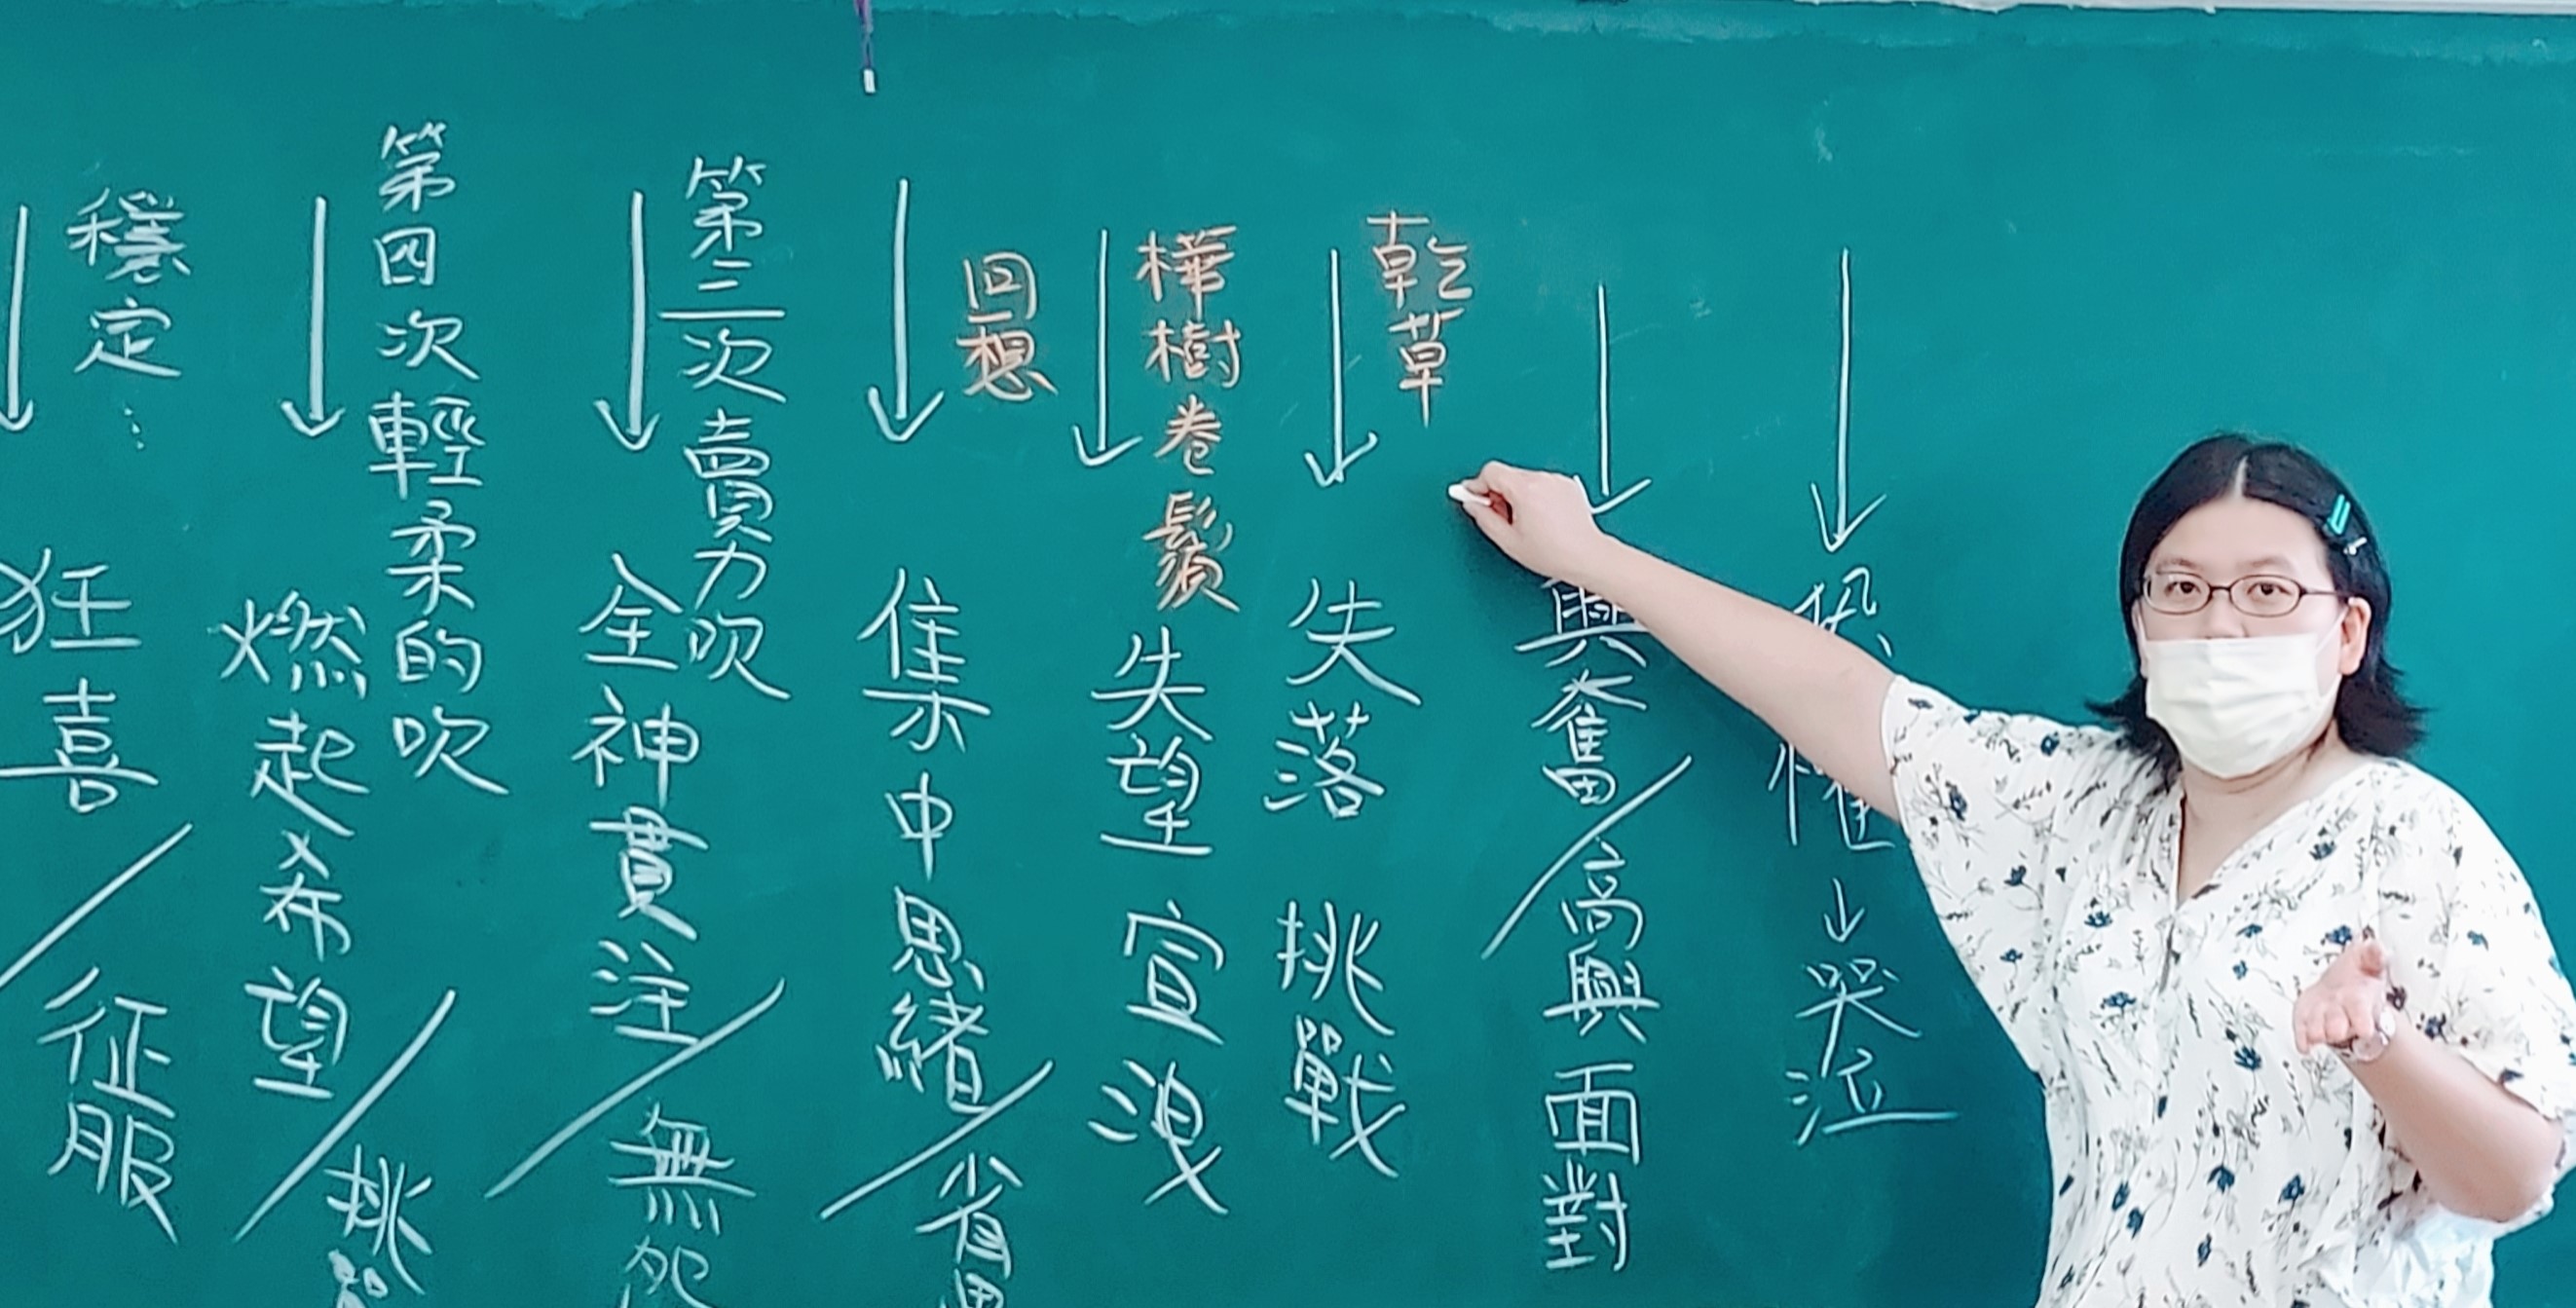 恐懼↓哭泣
興奮/高興面對
乾草
失落挑戰
樺樹卷鬚
失望宣洩
回想
集中思緒/省思
第三次賣力吹
全神貫注/無
第四次輕柔的吹
燃起希望/挑
穩定…
狂喜/征服